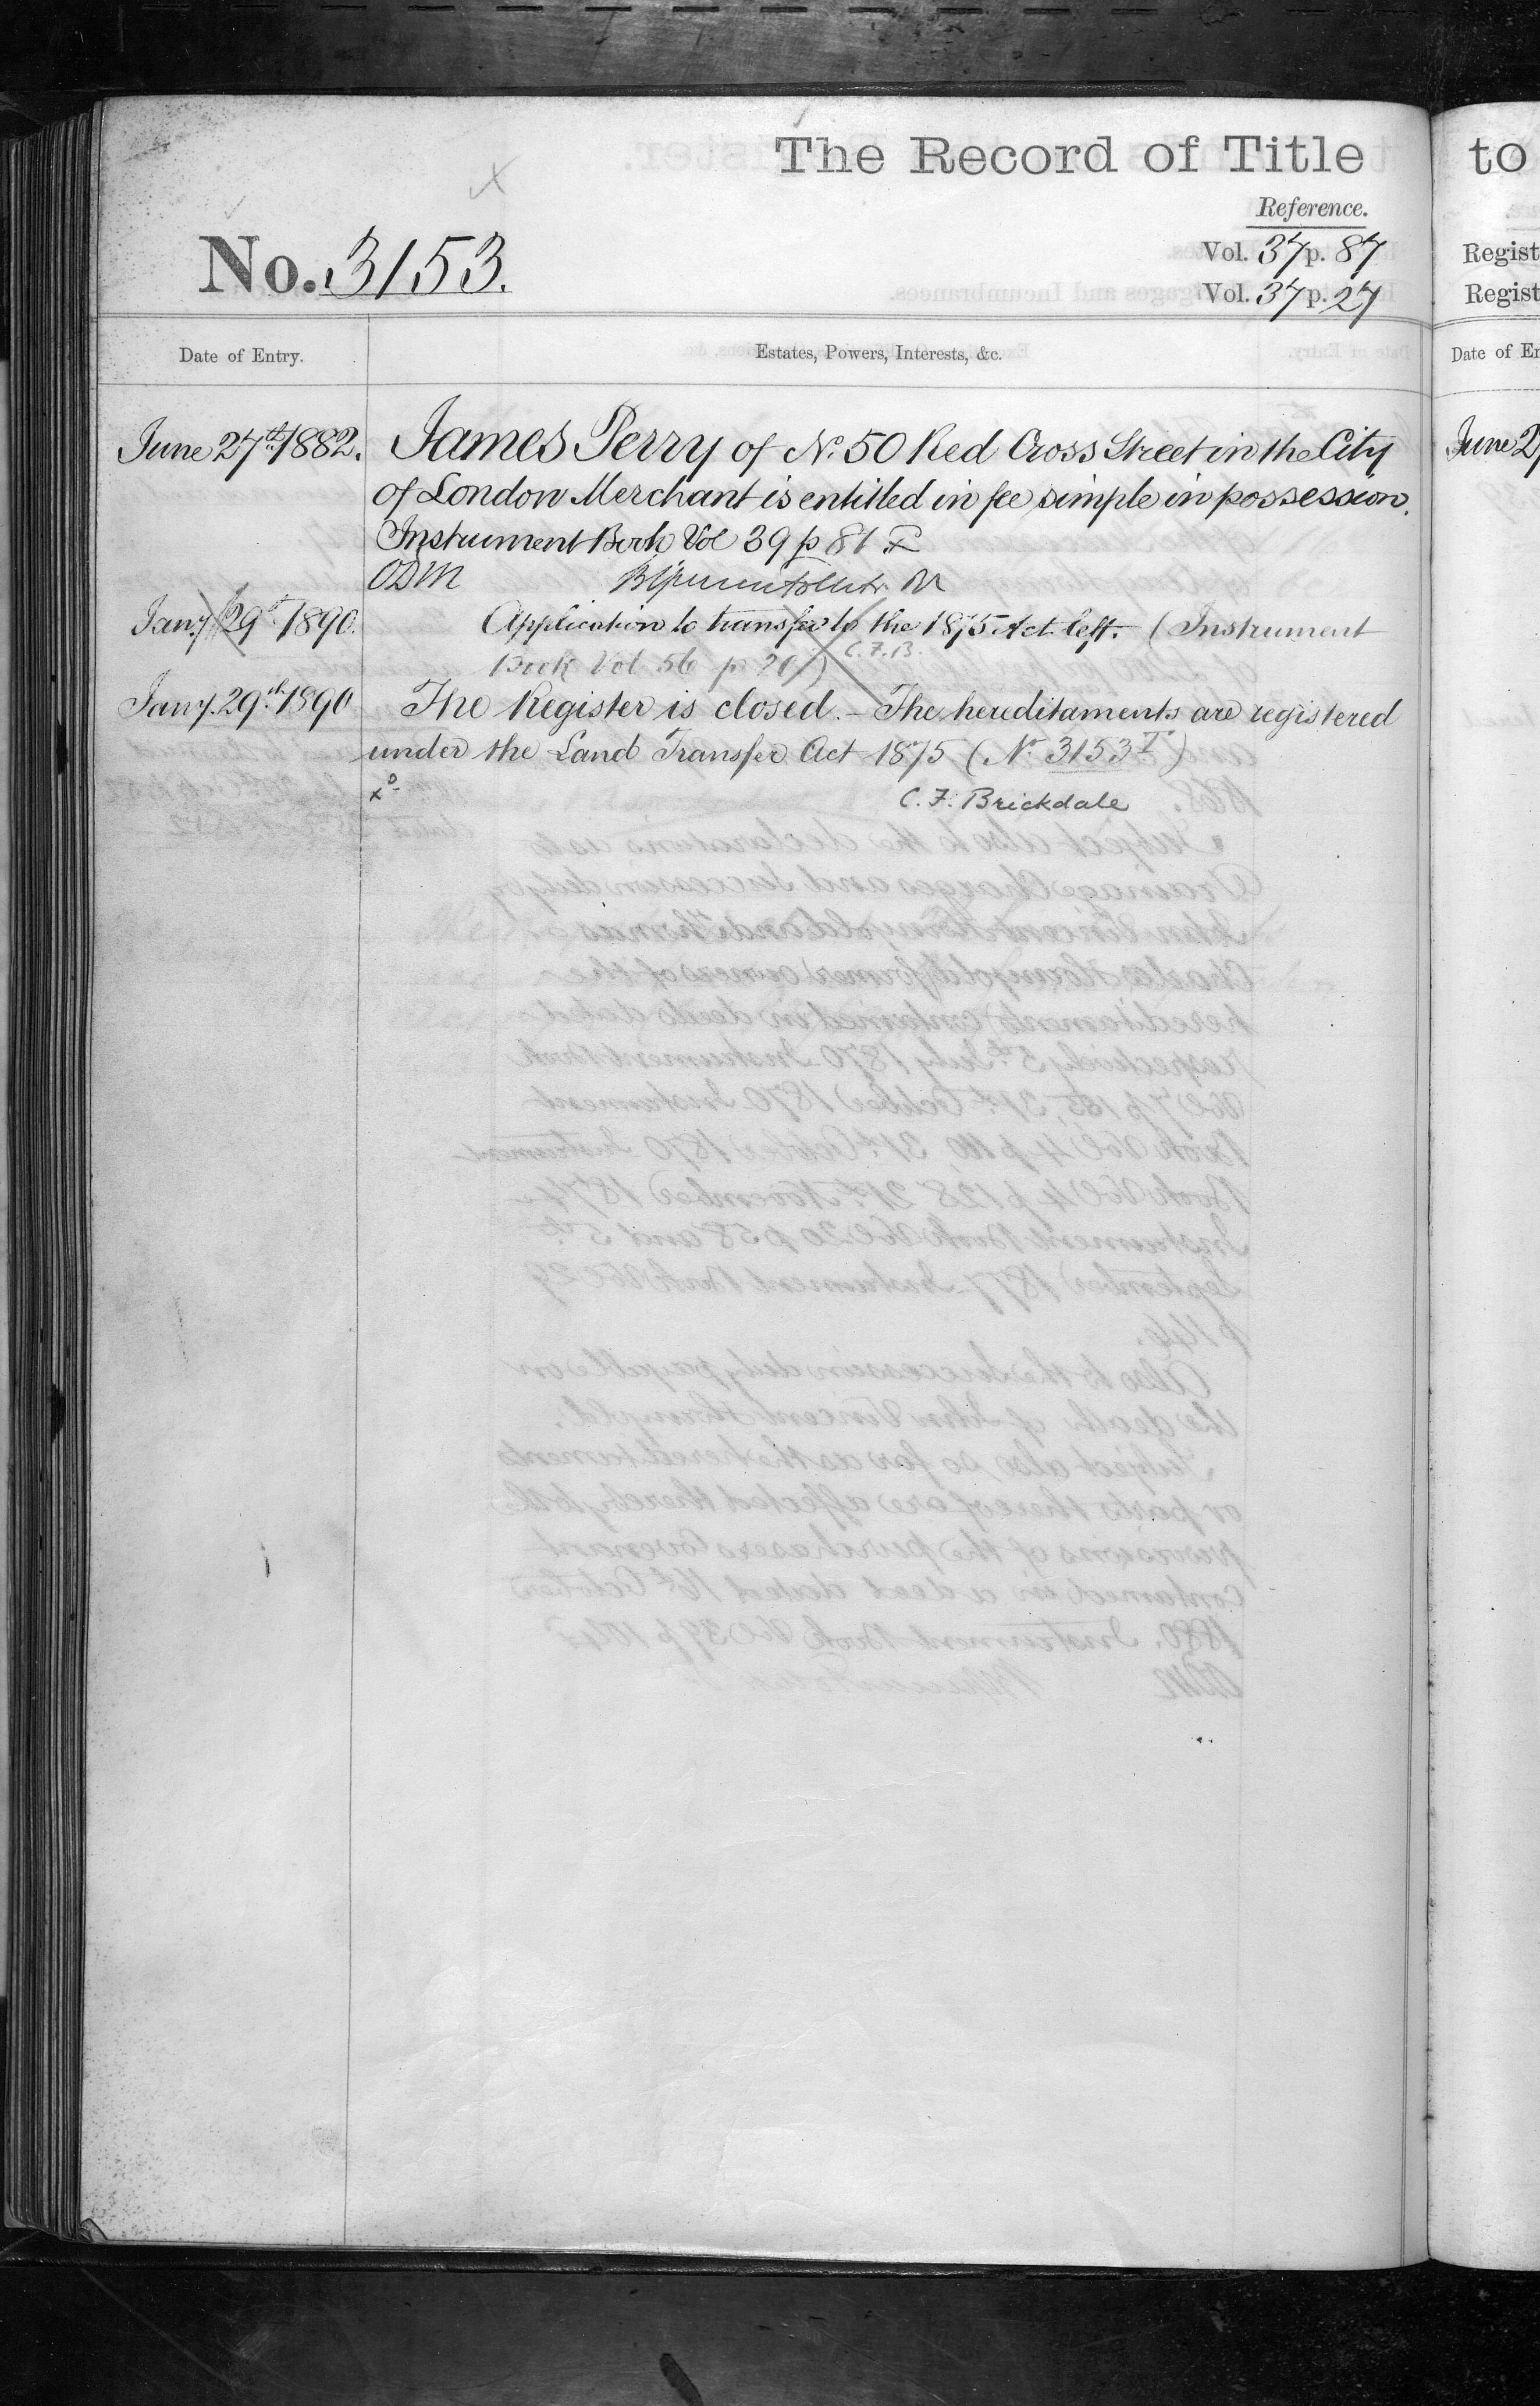 The Record of Title
to
Reference.
No. 3153.
Vol. 37 p. 87
Vol. 37 p. 27
Regist
Regist
Date of Entry.
Estates, Powers, Interests, &c.
Date of En
June 27th 1882.
James Perry of No. 50 Red Cross Street in the City
of London Merchant is entitled in fee simple in possession.
Instrument Book Vol 39 p 81
ODM
Jany 29th 1890.
Application to transfer to the 1875 Act left. (Instrument
Book Vol 56 p 20 )
C.F.B.
Jany. 29th 1890
The Register is closed. – The hereditaments are registered
under the Land Transfer Act 1875 (No 3153 T)
C. F. Brickdale
June 27